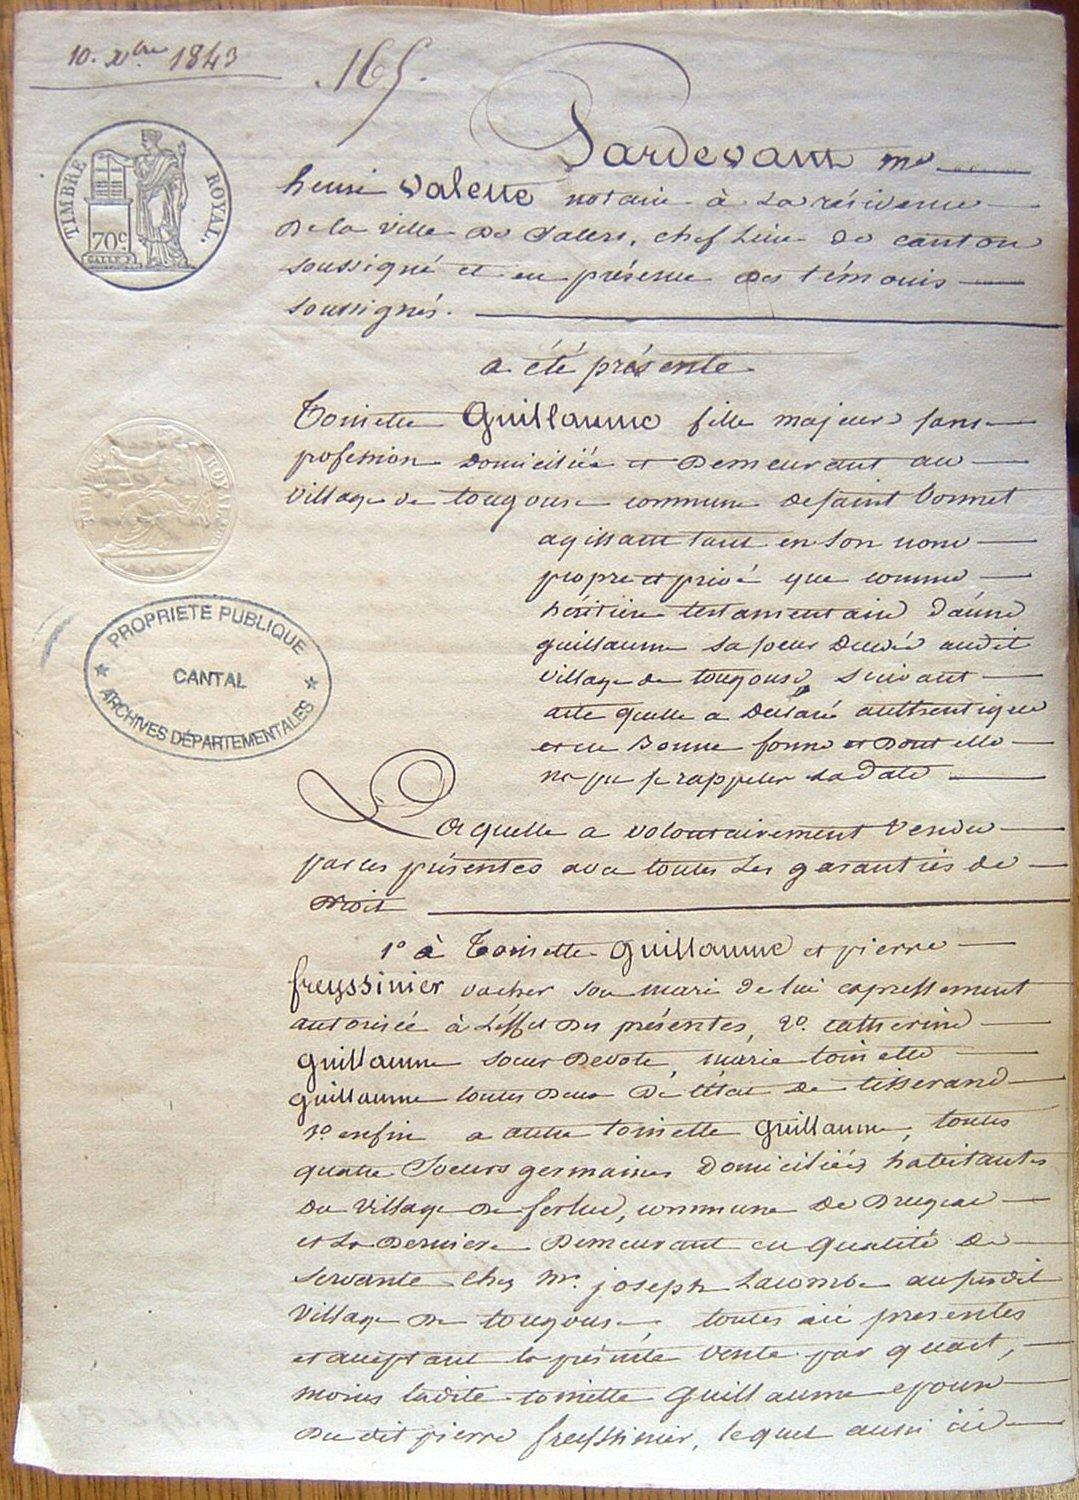 10. Xbre 1843
165.
TIMBRE ROYAL.
70c
Pardevant me
henri Valette notaire à La résidence
De la ville De Salers, chef Lieu de canton
soussigné et en présence des témoins
soussignés.
a été présente
Toinette Guillaume fille majeure sans
profession domiciliée et Demeurant au
village de tougouse commune de saint bonnet
agissant tant en son nom
propre et privé que comme
héritière testamentaire d'anne
guillaume sa soeur décédée audit
village de tougouse, suivant
acte quelle a déclaré authentique
et en Bonne forme et Dont elle
na pu se rappeler la date
PROPRIETE PUBLIQUE
CANTAL
ARCHIVES DÉPARTEMENTALES
Laquelle a volontairement Vendu
par ces présentes avec toutes Les garanties de
Droit
1º à Toinette Guillaume et pierre
freyssinier vacher son mari de lui expressement
autorisée à L'effet Des présentes, 2º. catherine
guillaume soeur Devote, marie toinette
guillaume toutes deux De l'état de tisserand
3º enfin a autre toinette guillaume, toutes
quatre Soeurs germaines Domiciliées habitantes
du village de ferluc, commune de Drugeac
et La Dernière Demeurant en qualité de
Servante chez Mr. joseph Lacombe au susdit
village de tougouse, toutes ici presentes
et acceptant la présente Vente par quart,
moins ladite toinette Guillaume epouse
du dit pierre freyssinier, lequel aussi ici